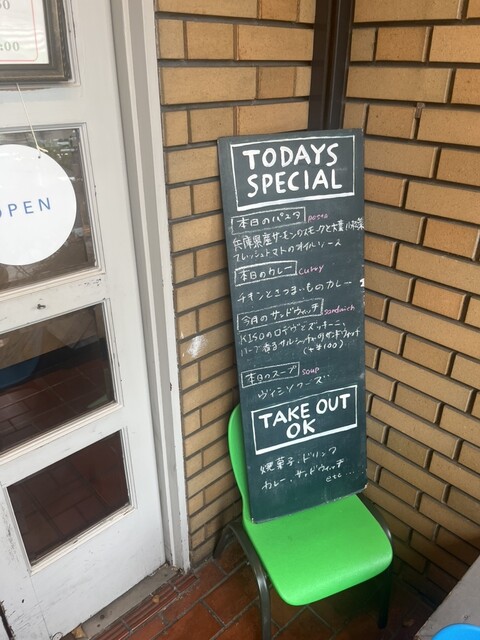 50
:00
OPEN
TODAYS
SPECIAL
本日のパスタ pasta
兵庫県産サーモンのスモークと大葉
フレッシュトマトのオイルソース
本日のカレー curry
チキンとさつまいものカレー
今月のサンドウィッチ sandwich
KISOのロデヴとズッキーニ、
ハーブ香るサルシッチャのサンドウィッチ
(+¥100)
本日のスープ soup
ヴィシソワーズ
TAKE OUT
OK
焼菓子・ドリンク
カレー・サンドウィッチ
etc...